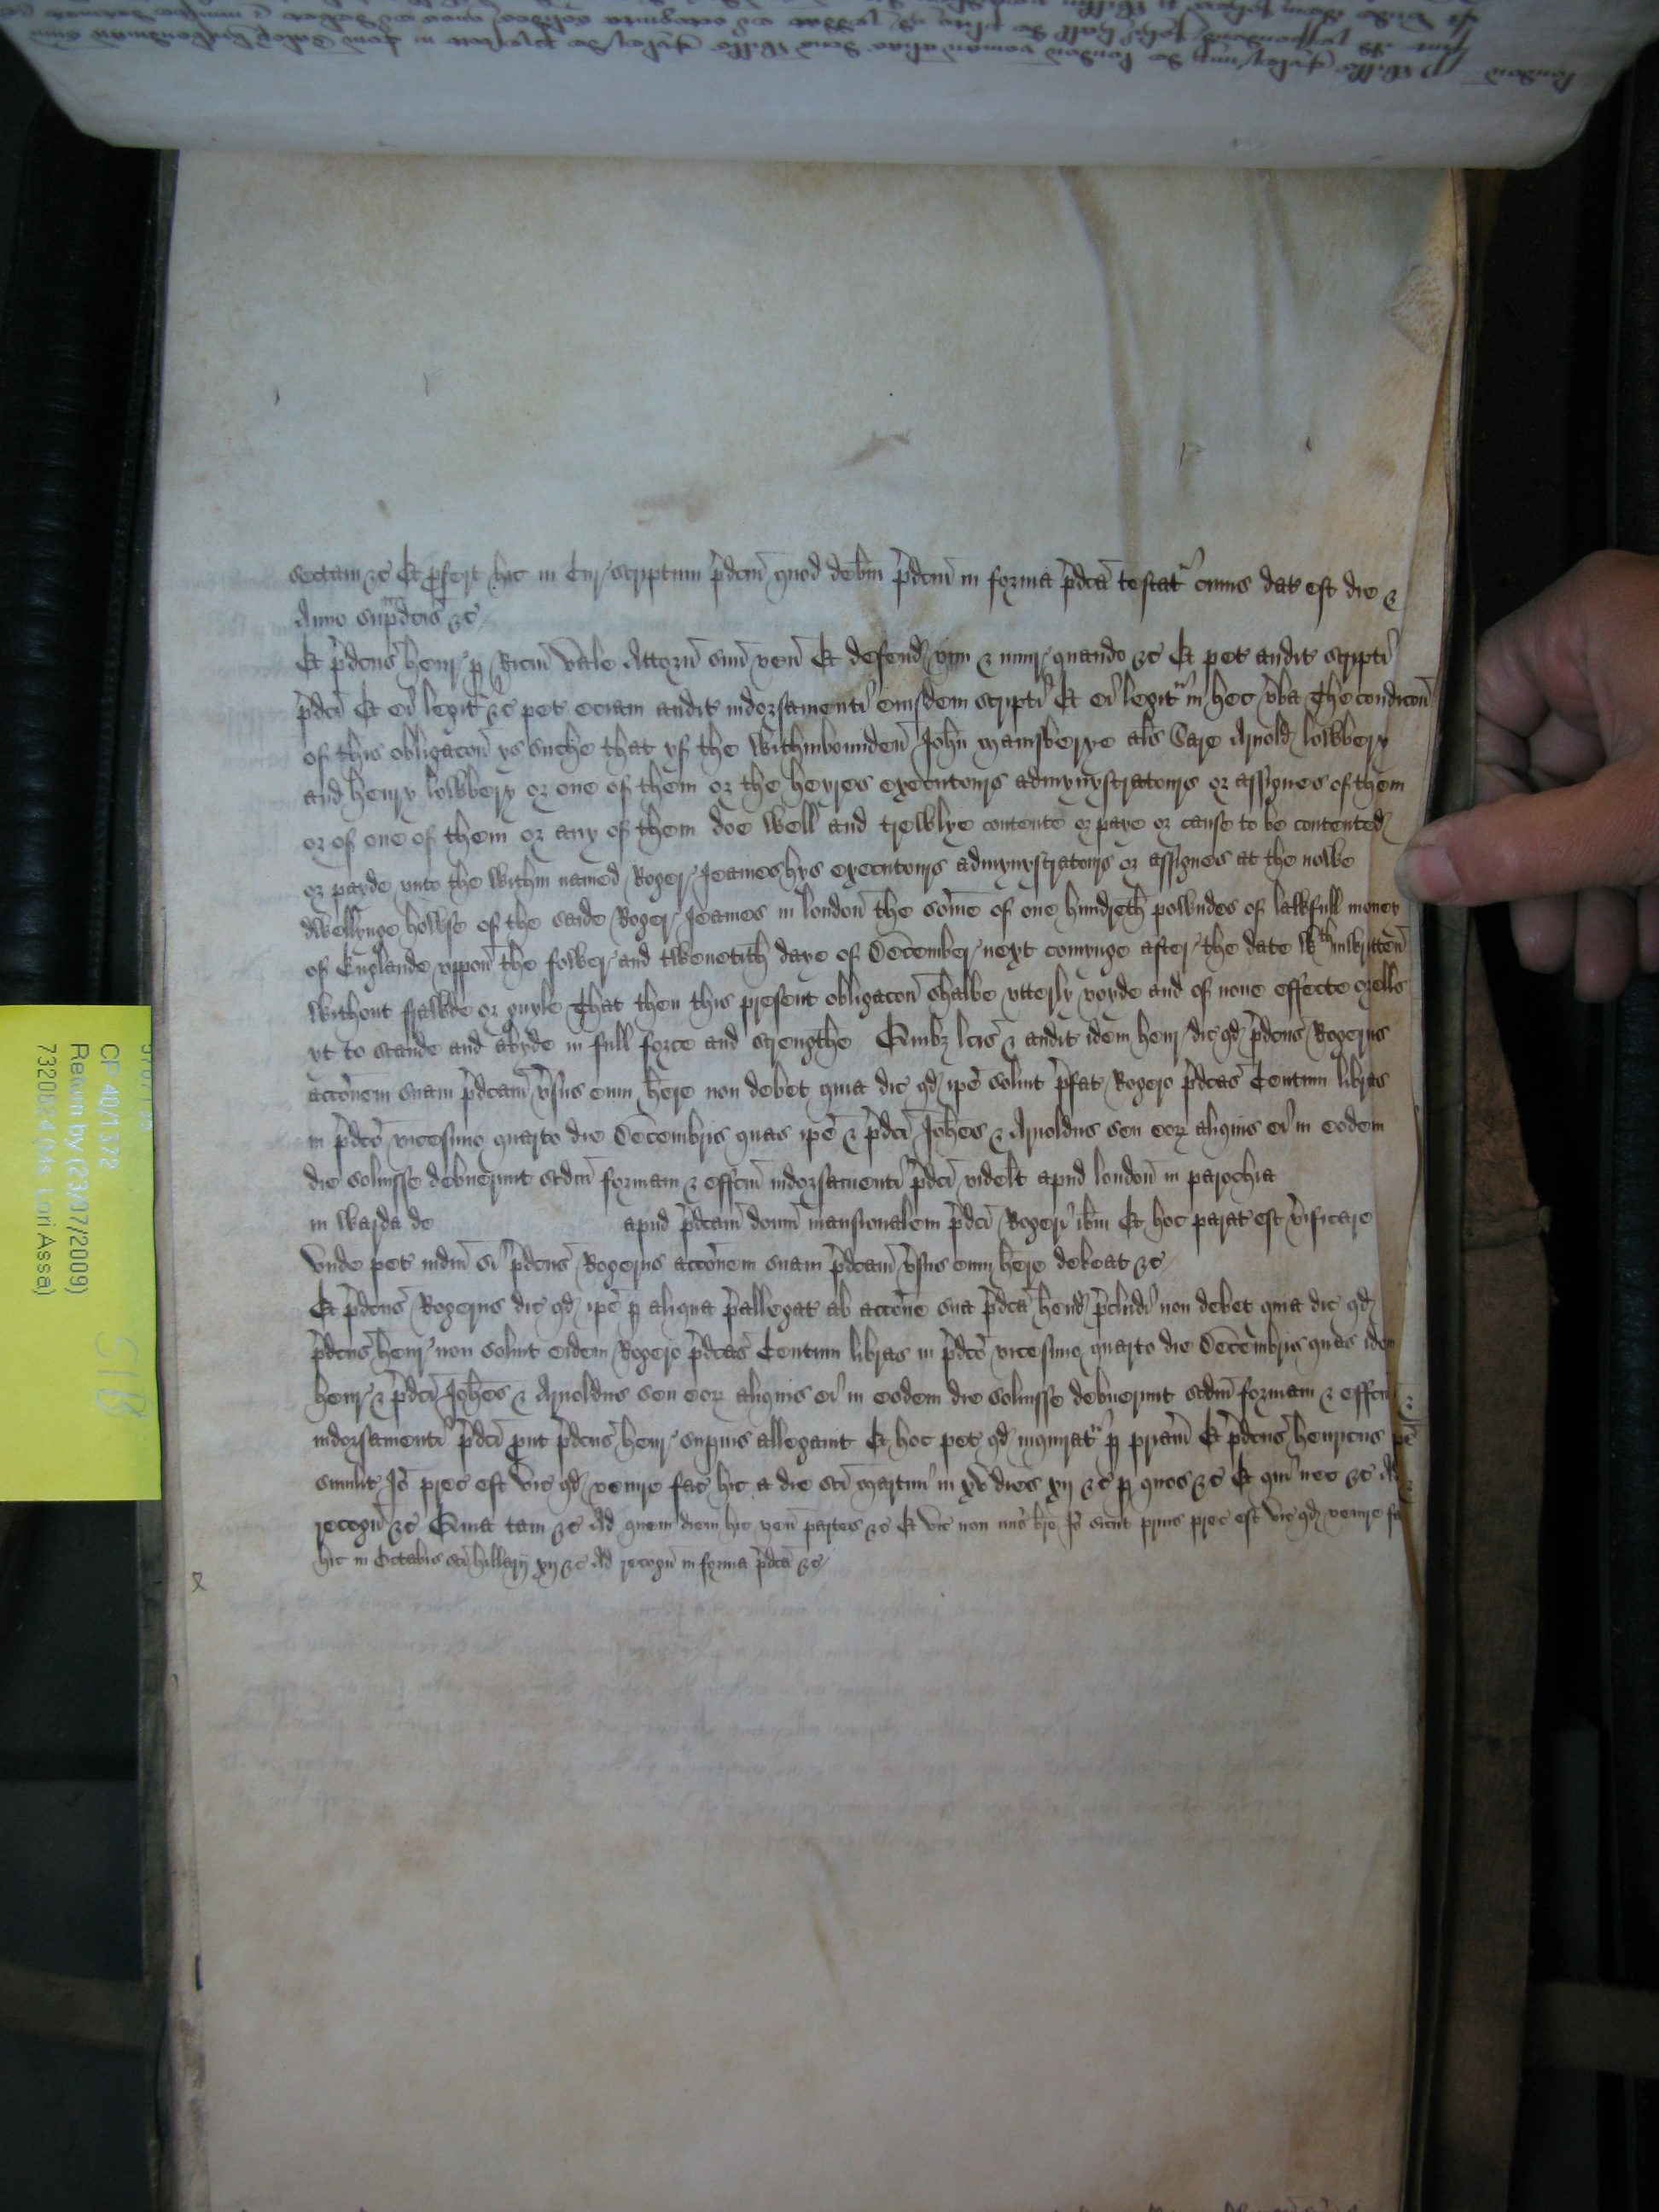 sectam &c Et profert hic in Cur scriptum p̄dcm̄ quod deb̄m p̄dcm̄ in forma p̄dcā testat^r cuius dat est die &
Anno sup^adcis &c
Et p̄dcus Henr p Ricm̄ Vale Attorn̄ sūm ven̄ Et defend vim & iniur quando &c Et pet audit scripti
p̄dci Et ei legit^r &c pet eciam audit indorsamenti eiusdem scripti Et ei legit^r in hec v̄ba The condicon̄
of this obligacon̄ ys suche that yf the withinbounden̄ John̄ als̄ Care Arnold lowbery
and henry lowbery or one of them or the heyres executours admynystratours or assignes of them
or of one of them or any of them doe well and trewlye contente or paye or cause to be contented
or payde vnto the within named Roger Jeames hys executours admynystratours or assignes at the nowe
dwellynge howse of the saide Roger Jeames in london̄ the som̄e of one hundreth powndes of lawfull money
of Englande vppon̄ the fower and twenetith daye of Decēmber next comynge after the date w^th inwritten̄
without frawde or guyle That then this present obligacon̄ shalbe vtterly voyde and of none effecte orells
yt to stande and abyde in full force and strengthe Quibz lc̄is & audit idem Henr dic qd p̄dcus Rogerus
acc̄onem suam p̄dcam v̄sus eum h̄ere non debet quia dic qd ip̄e soluit p̄fat Rogero p̄dcas Centum libras
in p̄dco vicesimo quarto die Decēmbris quas ip̄e & p̄dci Joh̄es & Arnoldus seu eor̄ aliquis ei in eodem
die soluisse debuerunt scdm̄ formam & effcm̄ indorsamenti p̄dci videlt apud london̄ in parochia
in warda de apud p̄dcam domū mansionalem p̄dci Rogeri ib̄m Et hoc parat est v̄ificare
vnde pet iudm̄ si p̄dcus Rogerus acc̄onem suam p̄dcam v̄sus eum h̄ere debeat &c
Et p̄dcus Rogerus dic qd ip̄e p aliqua p̄allegat ab acc̄one sua p̄dca h̄end p̄cludi non debet quia dic qd
p̄dcus Henr non soluit eidem Rogero p̄dcas Centum libras in p̄dco vicesimo quarto die Decēmbris quas idem
Henr & p̄dci Joh̄es & Arnoldus seu eor̄ aliquis ei in eodem die soluisse debuerunt scdm̄ formam & effcm̄
indorsamenti p̄dci prout p̄dcus Henr supius allegauit Et hoc pet qd inquirat^r p pr̄iam Et p̄dcus Henricus
similit Iō prec est vic qd venire fac hic a die sci Martini in xv dies xij &c p quos &c Et qui nec &c Ad
recogn̄ &c Quia tam &c Ad quem diem hic ven̄ partes &c Et vic non mis̄ br̄e Iō sicut prius prec est vic qd venire fac
hic in Octabis sci Hillarij xij &c Ad recogn̄ in forma p̄dca &c
CP 40/1372
Return by (23/07/2009)
732062 4 (Ms. Lori Assa)